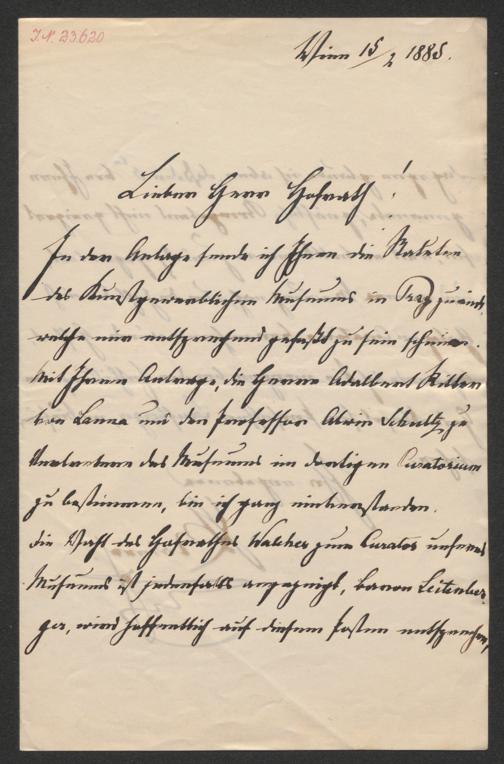 J.N. 23.620
Wien 15/2 1885.
Lieber Herr Hofrath!
In der Anlage sende ich Ihnen die Statuten
des Kunstgewerblichen Museums in Prag zurück,
welche mir entsprechend gefaßt zu sein scheinen.
Mit Ihrem Antrage, die Herren Adalbert Ritter
von Lanna und den Professor Alwin Schultz zu
Vertretern des Museums im dortigen Curatorium
zu bestimmen, bin ich ganz einverstanden.
Die Wahl des Hofrathes Walcher zum Curator unseres
Museums ist jedenfalls angezeigt, Baron Leitenber-
ger, wird hoffentlich auf diesem Posten entsprechen,